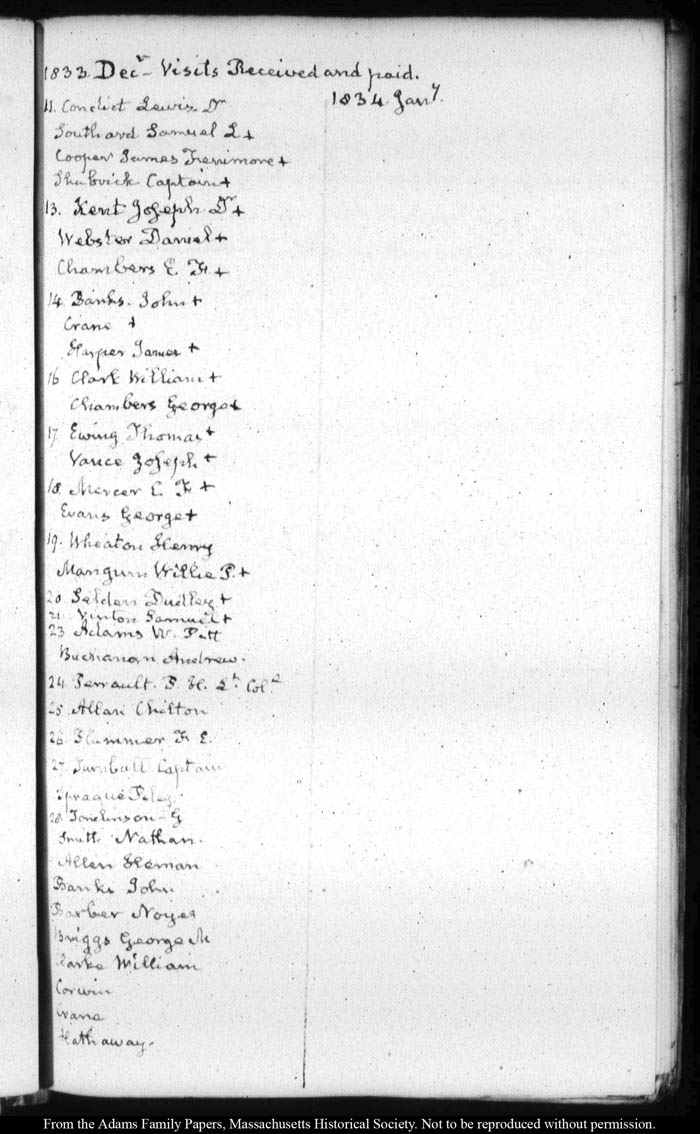 1833. Decr. Visits Received and paid.
1834 Jany.
11. Condict Lewis. Dr
Southard Samuel L +
Cooper James Fenimore +
Shubrick Captain +
13. Kent Joseph Dr +
Webster Daniel +
Chambers E. F. +
14. Banks. John +
Crane +
Harper James +
16 Clark William +
Chambers George +
17 Ewing Thomas +
Vance Joseph +
18. Mercer C. F. +
Evans George +
19. Wheaton Henry
Mangum Willie P. +
20. Selden Dudley +
21. Vinton Samuel +
23 Adams W. Pitt
Buchanan Andrew.
24. Perrault. P. H. Lt. Col.
25. Allan Chilton
26. Plummer F. E.
27. Turnbull Captain
Sprague Peleg.
28. Tomlinson - G
Smith Nathan.
Allen Heman
Banks John.
Barber Noyes
Briggs George N
Clarke William
Corwin
Crane
Hathaway.
From the Adams Family Papers, Massachusetts Historical Society. Not to be reproduced without permission.